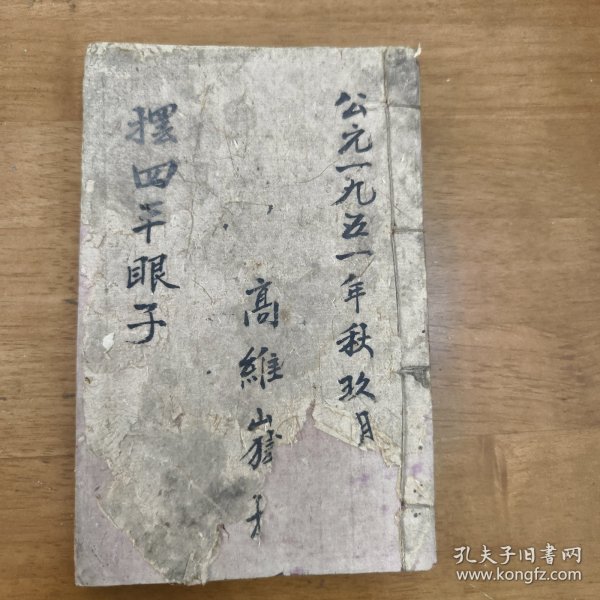 公元一九五一年秋玖月
高維
摆四平眼子
孔夫子旧书网
www.kongfz.com